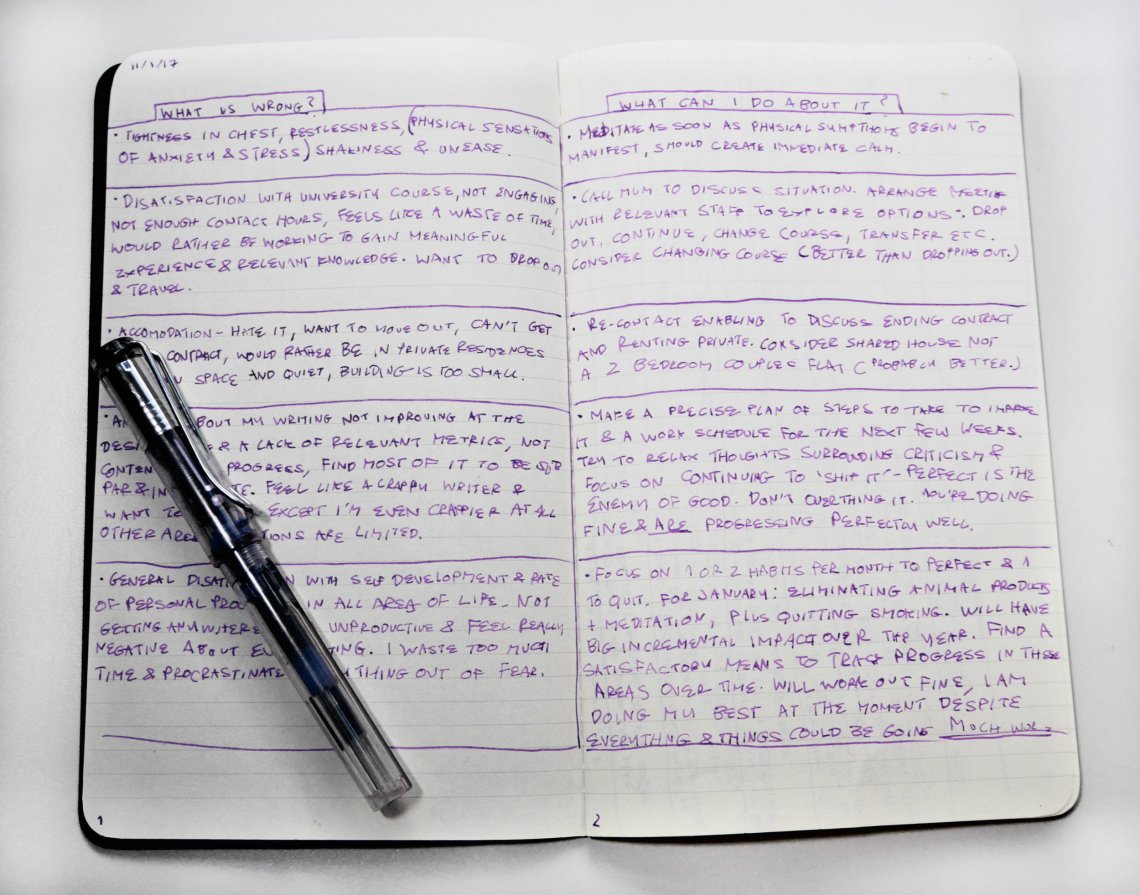 11/1/17
WHAT IS WRONG?
• TIGHTNESS IN CHEST, RESTLESSNESS, (PHYSICAL SENSATIONS
OF ANXIETY & STRESS) SHAKINESS & UNEASE.
• DISATISFACTION WITH UNIVERSITY COURSE, NOT ENGAGING,
NOT ENOUGH CONTACT HOURS, FEELS LIKE A WASTE OF TIME,
WOULD RATHER BE WORKING TO GAIN MEANINGFUL
EXPERIENCE & RELEVANT KNOWLEDGE. WANT TO DROP OUT
& TRAVEL.
• ACCOMODATION - HATE IT, WANT TO MOVE OUT, CAN'T GET
CONTRACT, WOULD RATHER BE IN PRIVATE RESIDENCES
SPACE AND QUIET, BUILDING IS TOO SMALL.
ABOUT MY WRITING NOT IMPROVING AT THE
& A LACK OF RELEVANT METRICS, NOT
PROGRESS, FIND MOST OF IT TO BE SUB
PAR & FEEL LIKE A CRAPPY WRITER &
WANT TO EXCEPT I'M EVEN CRAPPIER AT ALL
OTHER ARE LIMITED.
• GENERAL WITH SELF DEVELOPMENT & RATE
OF PERSONAL IN ALL AREAS OF LIFE. NOT
GETTING ANYWHERE UNPRODUCTIVE & FEEL REALLY
NEGATIVE ABOUT I WASTE TOO MUCH
TIME & PROCRASTINATE OUT OF FEAR.
1
WHAT CAN I DO ABOUT IT?
• MEDITATE AS SOON AS PHYSICAL SYMPTIONS BEGIN TO
MANIFEST, SHOULD CREATE IMMEDIATE CALM.
• CALL MUM TO DISCUSS SITUATION. ARRANGE MEETING
WITH RELEVANT STAFF TO EXPLORE OPTIONS: DROP
OUT, CONTINUE, CHANGE COURSE, TRANSFER ETC.
CONSIDER CHANGING COURSE (BETTER THAN DROPPING OUT.)
• RE-CONTACT ENABLING TO DISCUSS ENDING CONTRACT
AND RENTING PRIVATE. CONSIDER SHARED HOUSE NOT
A 2 BEDROOM COUPLES FLAT (PROBABLY BETTER.)
• MAKE A PRECISE PLAN OF STEPS TO TAKE TO IMPROVE
IT & A WORK SCHEDULE FOR THE NEXT FEW WEEKS.
TRY TO RELAX THOUGHTS SURROUNDING CRITICISM &
FOCUS ON CONTINUING TO 'SHIP IT' - PERFECT IS THE
ENEMY OF GOOD. DON'T OVERTHING IT. YOU'RE DOING
FINE & ARE PROGRESSING PERFECTLY WELL.
• FOCUS ON 1 OR 2 HABITS PER MONTH TO PERFECT & 1
TO QUIT. FOR JANUARY: ELIMINATING ANIMAL PRODUCTS
+ MEDITATION, PLUS QUITTING SMOKING. WILL HAVE
BIG INCREMENTAL IMPACT OVER THE YEAR. FIND A
SATISFACTORY MEANS TO TRACK PROGRESS IN THESE
AREAS OVER TIME. WILL WORK OUT FINE, I AM
DOING MY BEST AT THE MOMENT DESPITE
EVERYTHNG & THINGS COULD BE GOING MUCH WORSE
2